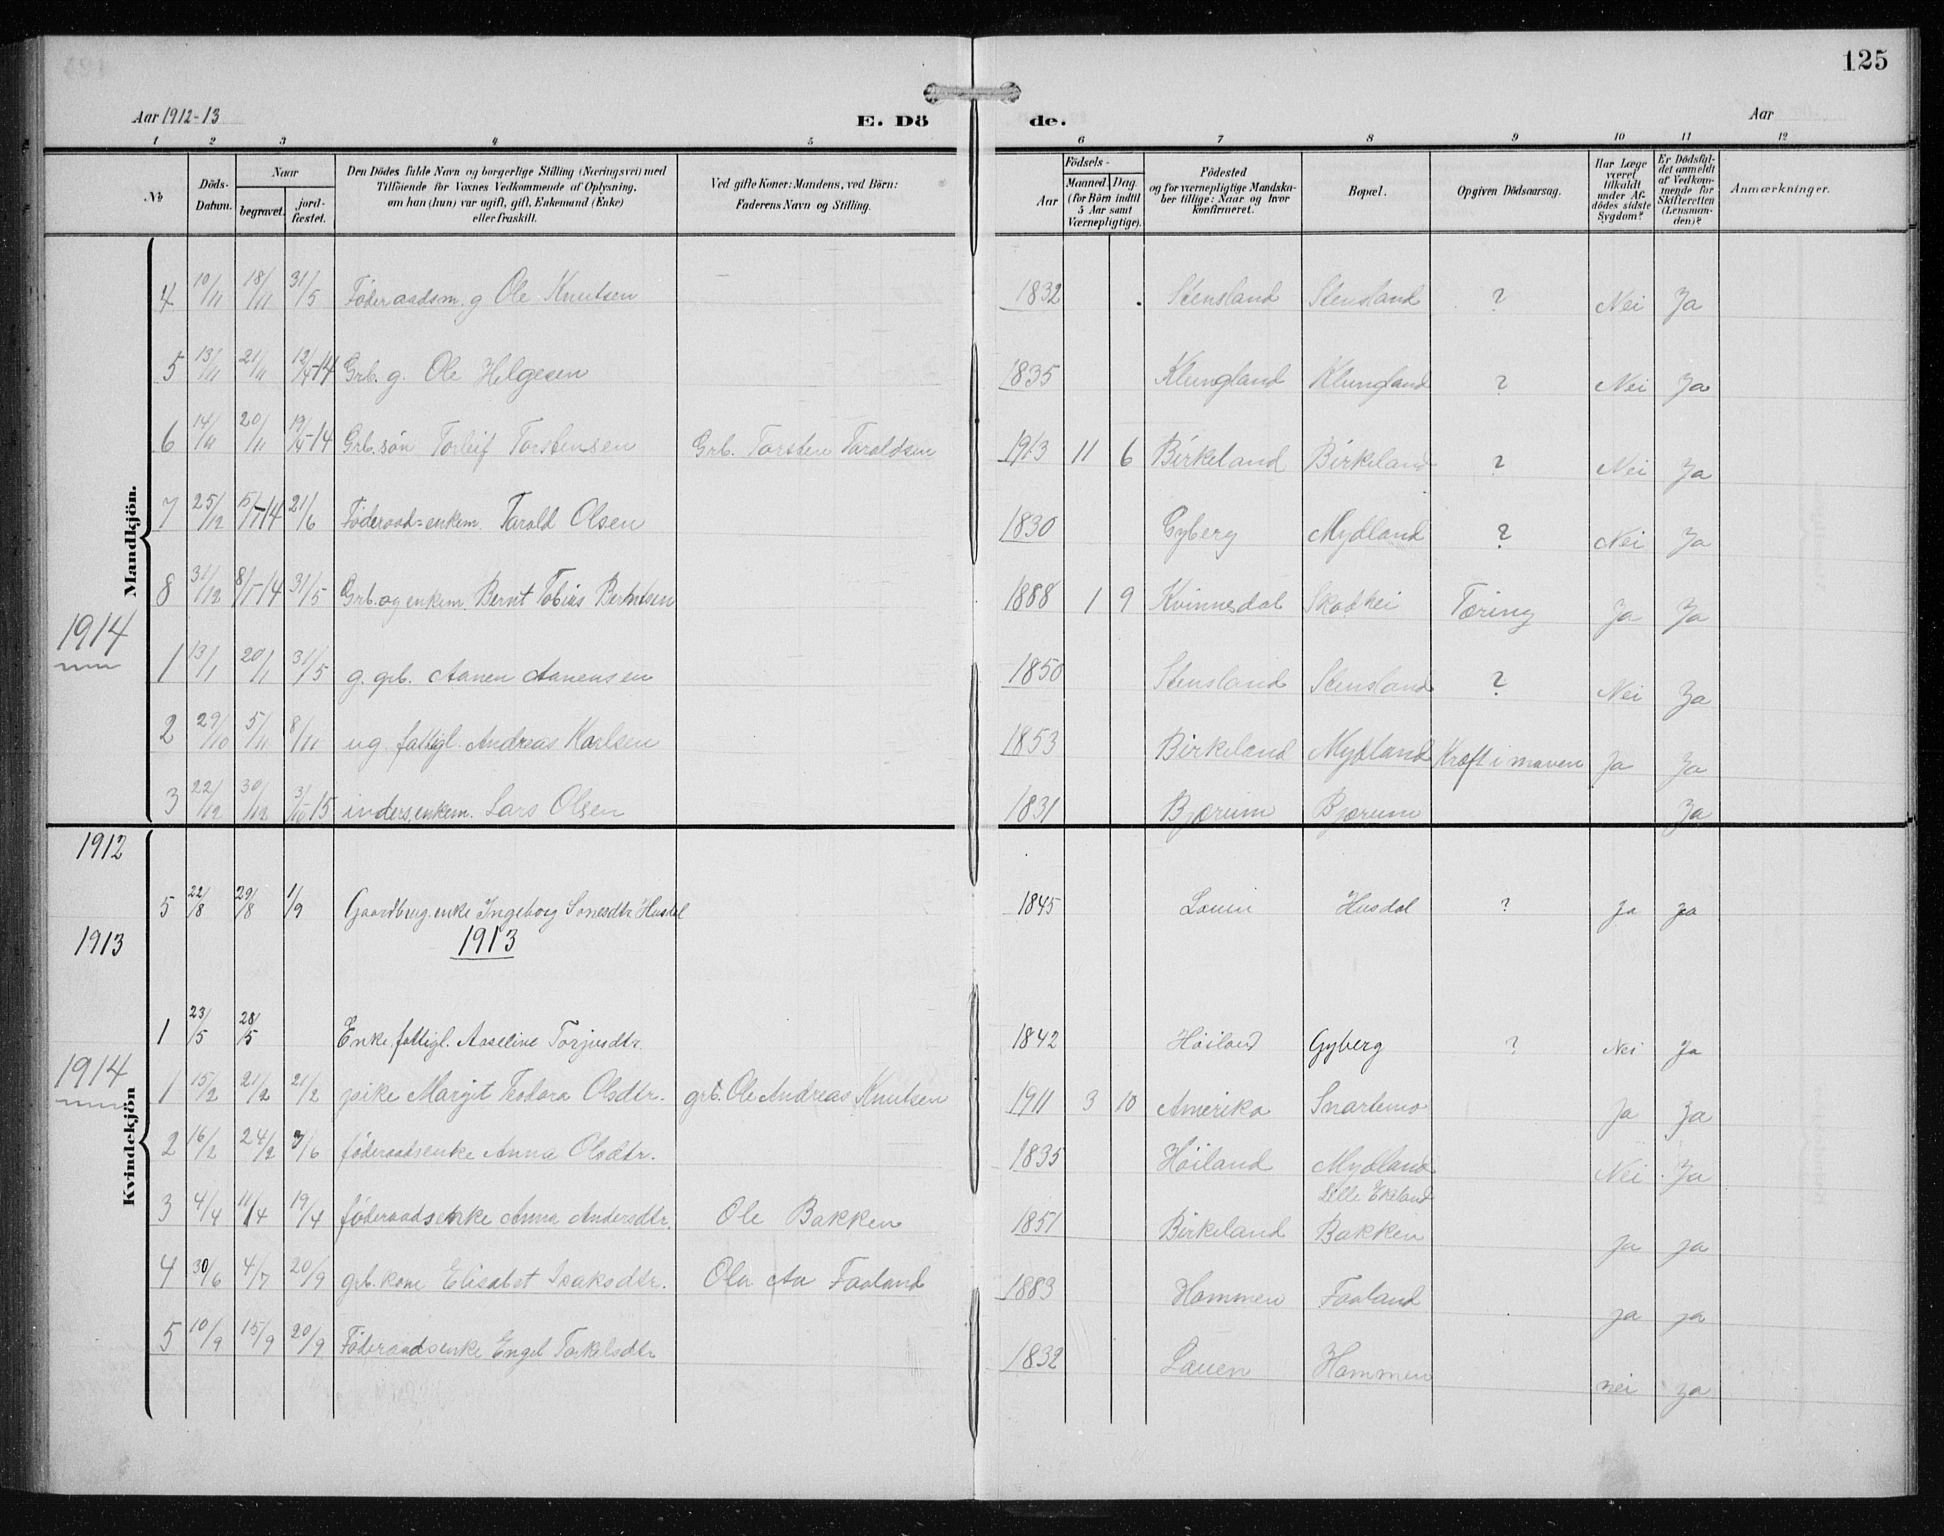 125
Aar 1912-13 E. Dö de. Aar
1 2 3 4 5 6 7 8 9 10 11 12
№ Döds-Datum. Naar begravet. jordfæstet. Den Dödes fulde Navn og borgerlige Stilling (Næringsvei) med Tilföiende for Voxnes Vedkommende af Oplysning, om han (hun) var ugift, gift, Enkemand (Enke) eller fraskilt. Ved gifte Koner: Mandens, ved Börn: Faderens Navn og Stilling. Födsels- Aar Maaned. Dag. (for Börn indtil 5 Aar samt Værnepligtige). Födested og for værnepligtige Mandskaber tillige: Naar og hvor konfirmeret. Bopæl. Opgiven Dödsaarsag. Har Læge været tilkaldt under Afdödes sidste Sygdom? Er Dödsfaldet anmeldt af Vedkommende for Skifteretten (Lensmanden)? Anmærkninger.
Mandkjön.
4 10/11 18/11 31/5 Föderaadsm. g Ole Knutsen 1832 Stensland Stensland ? Nei Ja
5 13/11 21/11 12/4-14 Grb. g. Ole Helgesen 1835 Klungland Klungland ? Nei Ja
6 14/11 20/11 19/4-14 Grb. sön Torleif Torstensen Grb. Torsten Taraldsen 1913 11 6 Birkeland Birkeland ? Nei Ja
7 25/12 15/1-14 21/6 Föderaad-enkem. Tarald Olsen 1830 Gyberg Mydland ? Nei Ja
8 31/12 8/1-14 31/5 Grb. og enkem. Bernt Tobias Berntsen 1888 1 9 Kvinnesdal Skadkei Tæring Ja Ja
1914
1 13/1 20/1 31/5 g. grb. Aanen Aanensen 1850 Stensland Stensland ? Nei Ja
2 29/10 5/11 8/11 ug. fattigl. Andreas Karlsen 1853 Birkeland Mydland Kræft i maven Ja Ja
3 22/12 30/12 3/10-15 inders. enkem. Lars Olsen 1831 Bjærum Bjærum Ja
1912
5 22/8 29/8 1/9 Gaardbrug. enke Ingeborg Sonesdtr Husdal 1845 Lauen Husdal ? Ja Ja
1913 1913
1 23/5 28/5 Enke, fattigl. Aaseline Torjusdtr. 1842 Höiland Gyberg ? Nei Ja
1914
Kvindekjön
1 15/2 21/2 21/2 pike Margit Teodora Olsdtr. grb. Ole Andreas Knutsen 1911 3 10 Amerika Snartemo Ja Ja
2 16/2 24/2 7/6 föderaadsenke Anna Olsdtr. 1835 Höiland Mydland Nei Ja
3 4/4 11/4 19/4 föderaadsenke Anna Andersdtr. Ole Bakken 1851 Birkeland Lille Ekeland Bakken Ja ja
4 30/6 4/7 20/9 grb. kone Elisabet Isaksdtr. Ola Aa Faaland 1883 Hammen Faaland ja ja
5 10/9 15/9 20/9 Föderaadsenke Engel Torkelsdtr 1832 Lauen Hammen nei ja